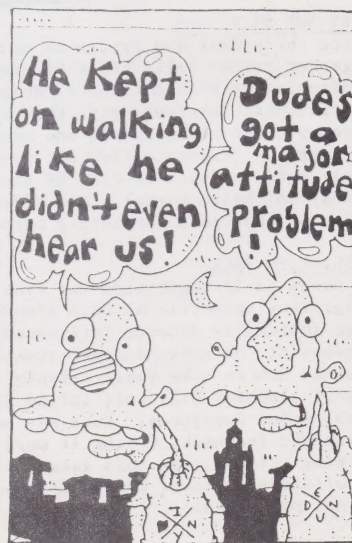 He Kept
on walking
like he
didn't even
hear us!
Dude's
got a
major
attitude
problem
!
I
♥ N
Y
E
D N
U